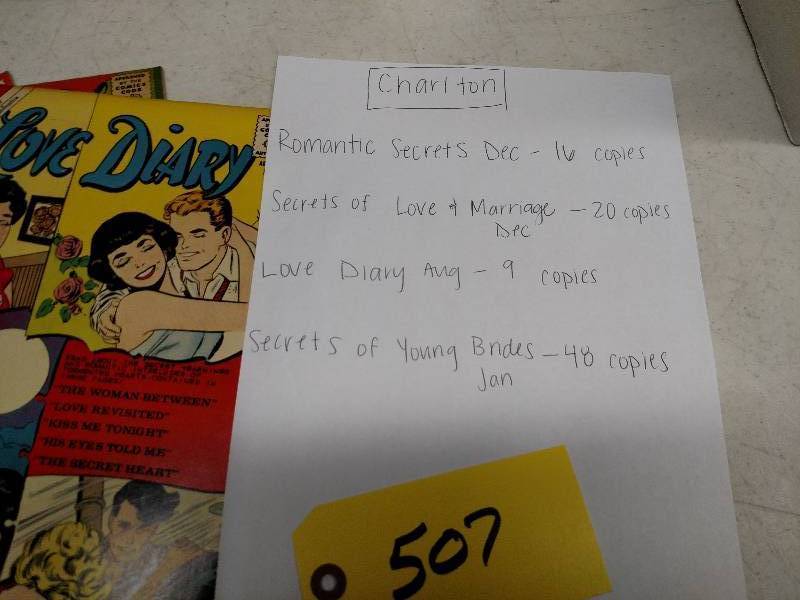 Charlton
Romantic Secrets Dec - 16 copies
Secrets of Love & Marriage - 20 copies
Dec
Love Diary Aug - 9 copies
Secrets of Young Brides - 48 copies
Jan
507
APPROVED
BY THE
COMICS
CODE
LOVE DIARY
"THE WOMAN BETWEEN"
"LOVE REVISITED"
"KISS ME TONIGHT"
"HIS EYES TOLD ME"
"THE SECRET HEART"